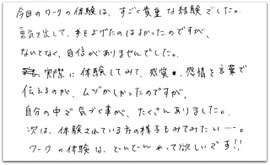 今日のワークの体験は、すごく貴重な経験でした。
勇気を出して、手をよげたのはよかったのですが、
なんとなく、自信がありませんでした。
実際に体験してみて、感覚・感情を言葉で
伝えるのが、ムヅかしかったのですが、
自分の中で気づく事が、たくさんありました。
次は、体験されている3分の様子もみてみたい…。
ワークの体験は、どんどんやって欲しいです!!